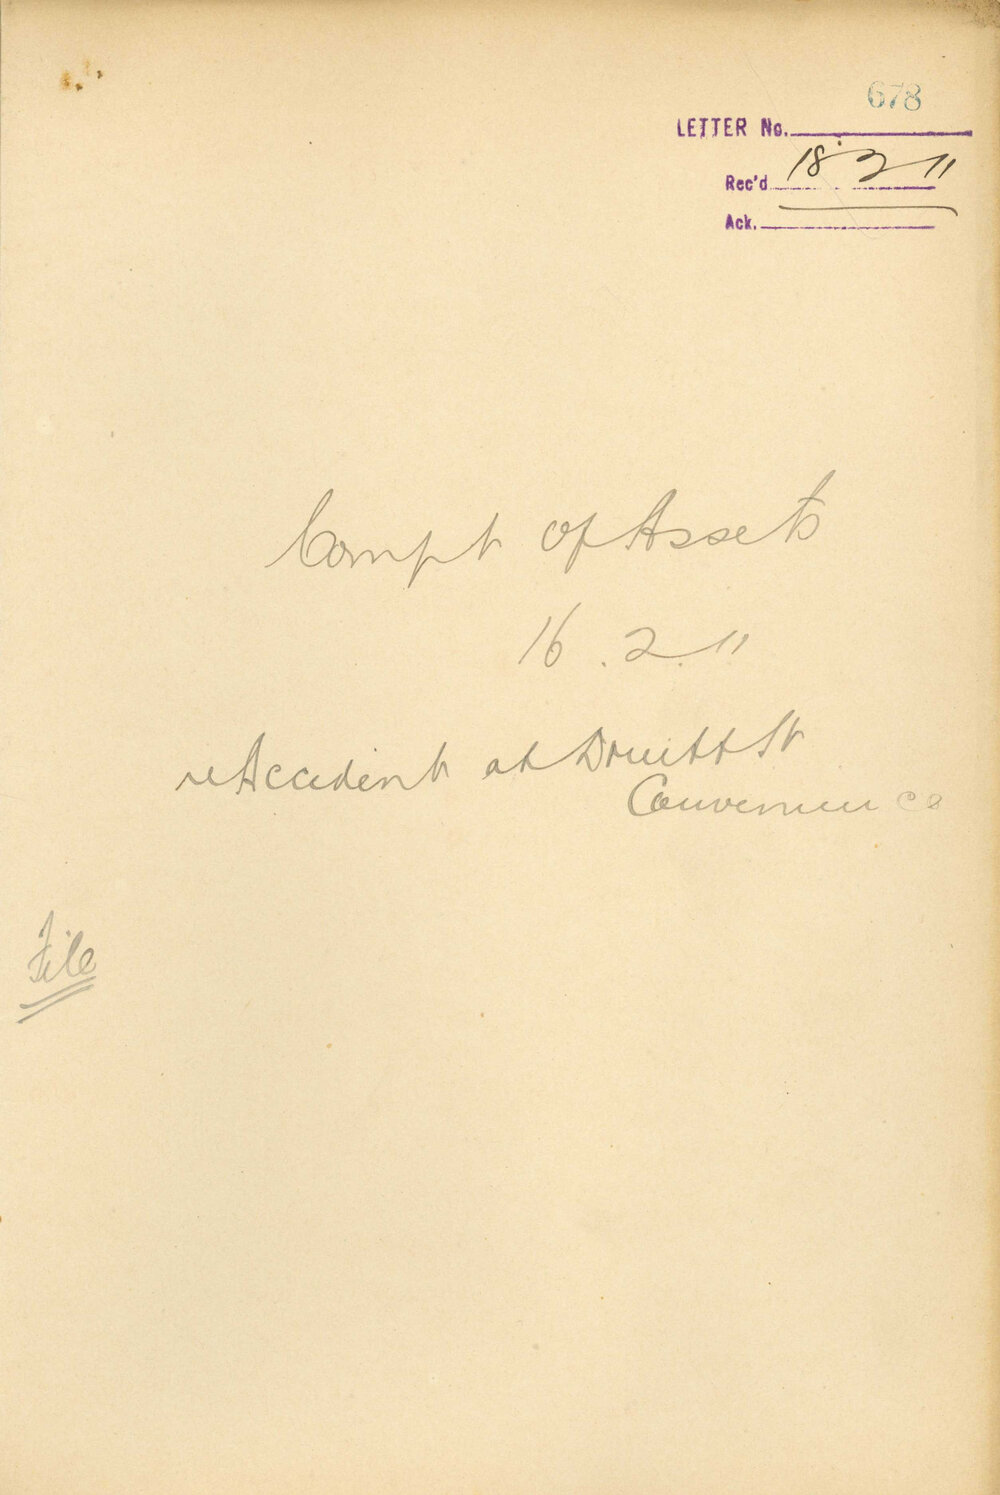 678
LETTER No.
Rec'd 18.2.11
Ack.
Compt of Assets
16.2.11
re Accident at Druitt St
Convenience
File